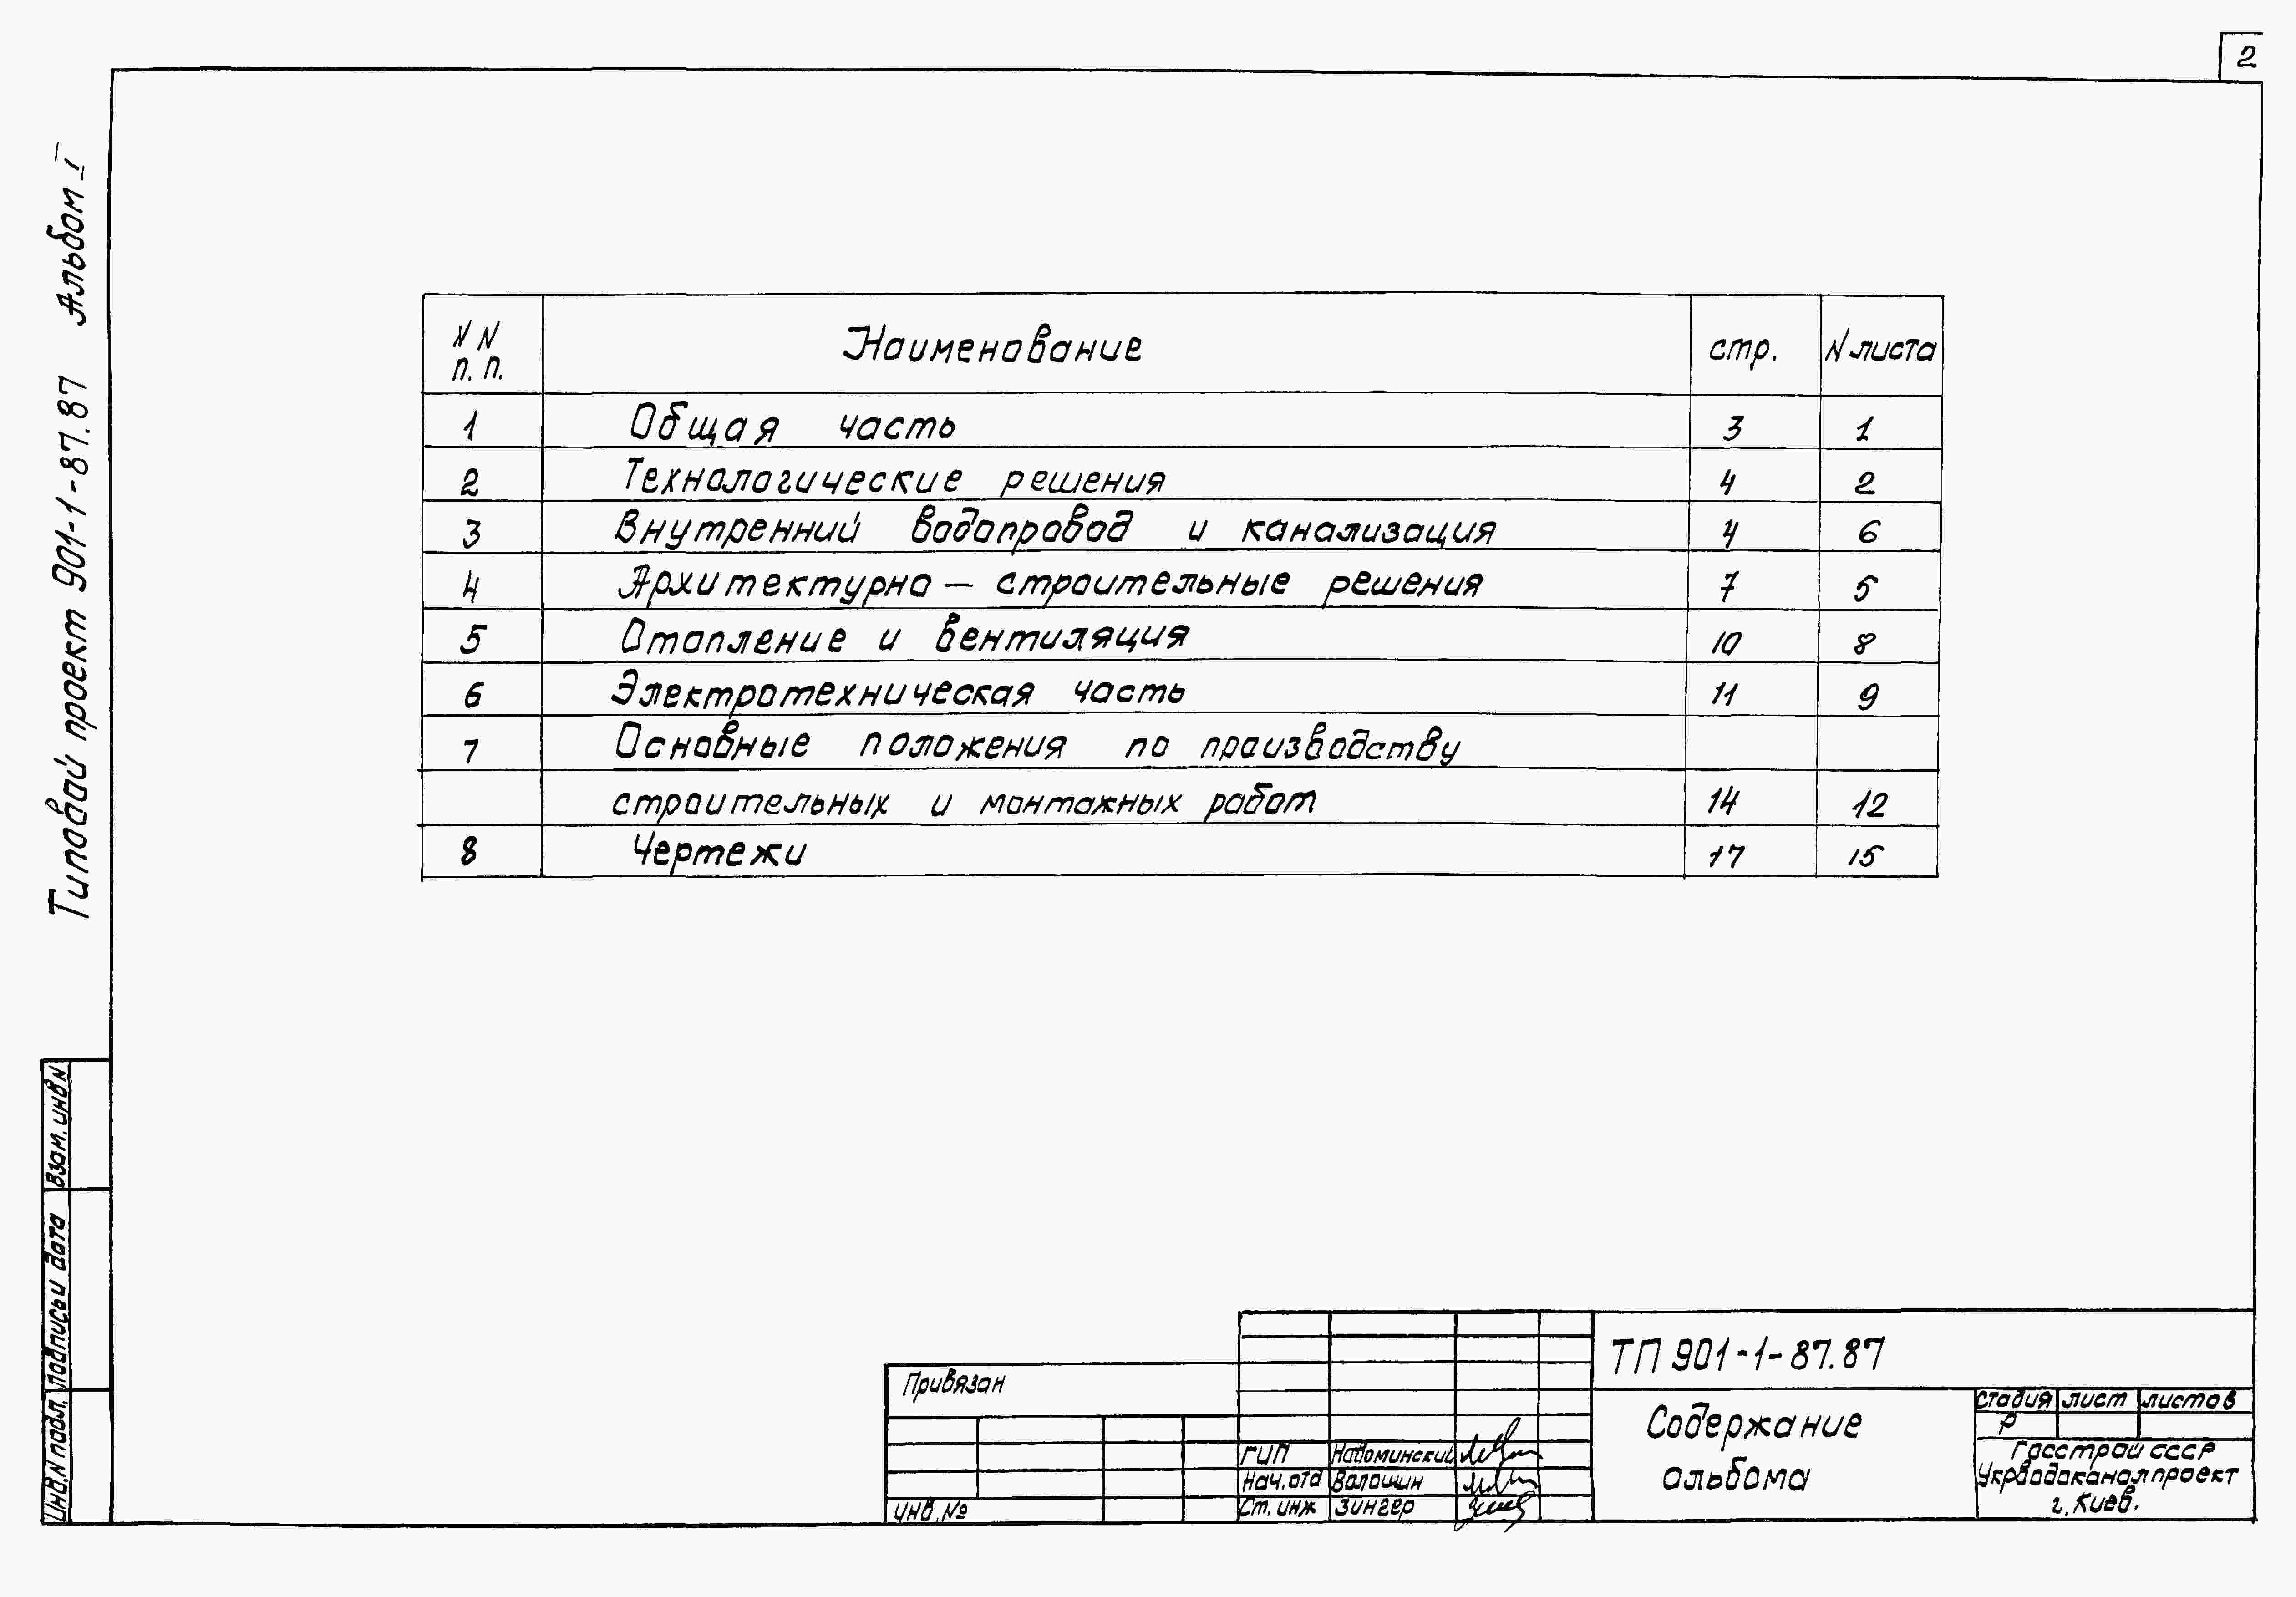 2
Типовой проект 901-1-87.87 Альбом I
NN п.п. Наименование стр. N листа
1 Общая часть 3 1
2 Технологические решения 4 2
3 Внутренний водопровод и канализация 4 6
4 Архитектурно — строительные решения 7 5
5 Отопление и вентиляция 10 8
6 Электротехническая часть 11 9
7 Основные положения по производству
строительных и монтажных работ 14 12
8 Чертежи 17 15
Взам. инв N
Подпись и дата
Инв. N подл.
Привязан
Инв. №
ГИП Надоминский
Нач. отд Волошин
Ст. инж Зингер
ТП 901-1-87.87
Содержание
альбома
стадия лист листов
Р
Госстрой СССР
Укрводоканалпроект
г. Киев.